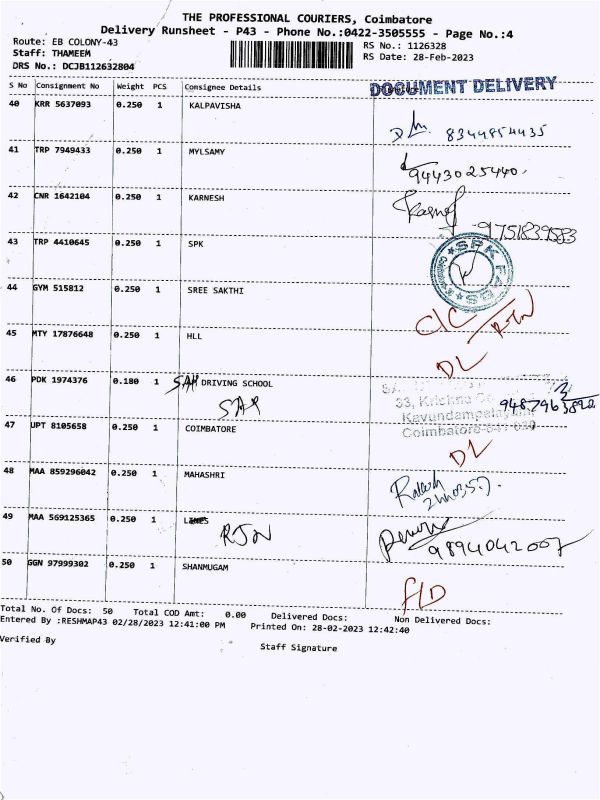 THE PROFESSIONAL COURIERS, Coimbatore
Delivery Runsheet - P43 - Phone No.:0422-3505555 - Page No.:4
Route: EB COLONY-43
RS No.: 1126328
Staff: THAMEEM
RS Date: 28-Feb-2023
DRS No.: DCJB112632804
S No Consignment No Weight PCS Consignee Details
DOCUMENT DELIVERY
40 KRR 5637093 0.250 1 KALPAVISHA
8344854435
41 TRP 7949433 0.250 1 MYLSAMY
9443025440.
42 CNR 1642104 0.250 1 KARNESH
9751839583
43 TRP 4410645 0.250 1 SPK
SPK FABS
44 GYM 515812 0.250 1 SREE SAKTHI
C/C RTN
45 MTY 17876648 0.250 1 HLL
DL
46 PDK 1974376 0.180 1 SAH DRIVING SCHOOL
SAR
33, Krishna
Kavundampalayam
Coimbatore-641 030
47 UPT 8105658 0.250 1 COIMBATORE
DL
48 MAA 859296042 0.250 1 MAHASHRI
49 MAA 569125365 0.250 1
RJN
9894042007
50 GGN 97999302 0.250 1 SHANMUGAM
F/D
Total No. Of Docs: 50 Total COD Amt: 0.00 Delivered Docs: Non Delivered Docs:
Entered By :RESHMAP43 02/28/2023 12:41:00 PM Printed On: 28-02-2023 12:42:40
Verified By
Staff Signature